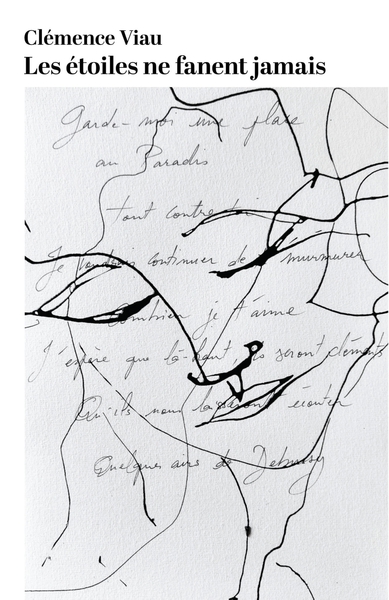 Clémence Viau
Les étoiles ne fanent jamais
Garde-moi une place
au Paradis
tout contre toi
Je voudrais continuer de murmurer
Combien je t'aime
J'espère que là-haut, ils seront cléments
Qu'ils nous laisseront écouter
Quelques airs de Debussy